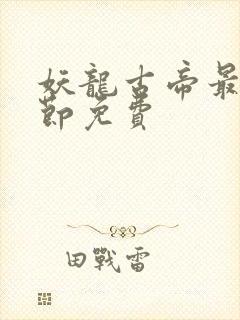 妖龍古帝最
節免費
田戰雷